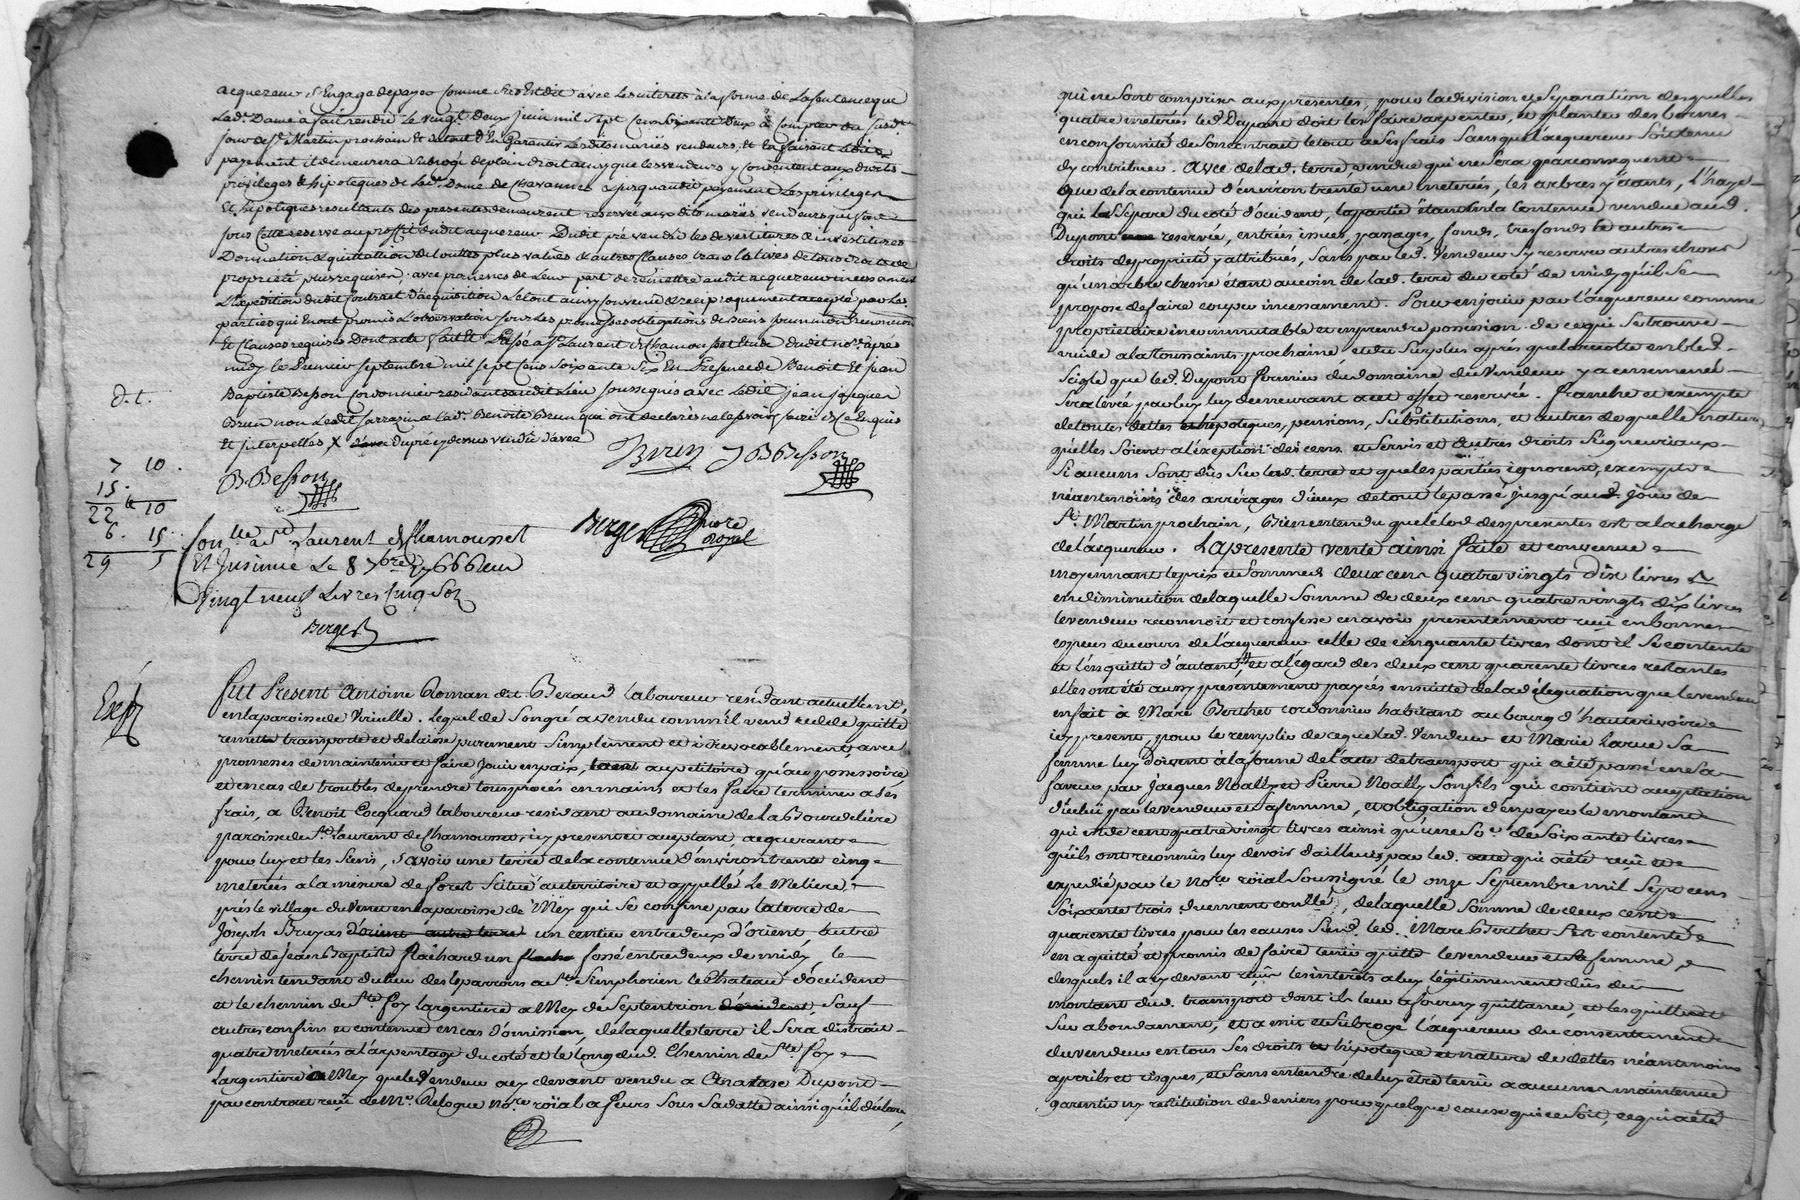 acquereur s'Engage de payer comme sus Est dit avec les interets a la forme de la sentence que
lad. Dame a fait rendre le vingt deux juin mil sept cens soixante deux a compter du susd.
jour de St. Martin prochain et du tout d'En Garantir lesdits mariés vendeurs, et en faisant ledit
payement il demeurera subrogé de plein droit ainsy que les vendeurs y consentent aux droits
privileges & hipoteques de lad. Dame de Chavannes jusqu'audit payement les privileges
Et hipoteques resultants des presentes demeurent reservé auxdits mariés vendeurs qui font
sous cette reserve au proffit dudit acquereur Dudit pré vendû les devestitures & investitures
Donnation & quittation de touttes plus values & autres clauses translatives de tous droits de
proprieté plus requises, avec promesse de leur part de remettre audit acquereur incessament
l'Expedition dudit contract d'acquisition le tout ainsy convenu & reciproquement accepté par les
parties qui En ont promis l'observation sous les promesses obligations de biens soumissions renonciations
Et clauses requises Dont acte fait Et Passé a St. Laurent de Chamousset Etude dudit nore. apres
midy le Premier septembre mil sept cens soixante six En Presence de Benoit Et jean
Baptiste Besson cordonniers residants audit lieu soussignés avec ledit jean jacques
Brun non ledit Sarrazin & lad. Benoite Brun qui ont declarés ne le sçavoir faire de ce Enquis
Et interpellés X du pré cy dessus vendû d'avec
d. t.
Brun J B Besson
B. Besson
7 10
15.
22 10
6. 15
29 5
Berger nore royal
Con.lle a St Laurent de Chamousset
Et Insinué Le 8 7bre 1766 Reçu
Vingt neuf Livres Cinq Sol
Berger
Exp
Fut Present Antoine Roman dit Beraud laboureur residant actuellement
en la paroisse de Virielle. lequel de son gré a vendu comm'il vend cede quitte
remette transporte et delaisse purement simplement et irrevocablement avec
promesses de maintenir et faire jouir en paix, tant au petitoire qu'au possessoire
et en cas de troubles de prendre tous procés en mains et les faire terminer a ses
frais, a Benoit Cocquard laboureur residant au domaine de la Bourdeliere
paroisse de St. Laurent de Chamousset, icy present et acceptant, acquerant
pour luy et les siens, sçavoir une terre de la contenue d'environ trente cinq
meterées a la mesure de forest située au territoire et appellé Le Meliere,
prés le village du Verney en la paroisse de Mey qui se confine par la terre de
Joseph Bruyas d'orient autre terre un centier entredeux d'orient autre
terre de Jean Baptiste Flachard un fossé entredeux de midy, le
chemin tendant du lieu des leparrons a St. Simphorien le Chateau d'occident
et le chemin de Ste. foy l'argentiere a Mey de Septentrion d'occident, sauf
autres confins et contenue en cas d'omission, de laquelle terre il sera distrait
quatre meterées a l'arpentage du coté et le long dud. Chemin de Ste. foy
l'argentiere a Mey que led. vendeur a cy devant vendu a Anastase Dupont
par contract reçû de Me. Deloque nore. roïal a feurs sous sa datte ainsi qu'il déclare,
qui ne sont comprises aux presentes, pour la division et separation desquelles
quatre meterées led. Dupont doit les faire arpenter, et planter des bornes
en conformité de son contract le tout a ses frais sans que l'acquereur soit tenu
d'y contribuer. Avec de lad. terre vendue qui ne sera par consequent
que de la contenue d'environ trente une meterées, les arbres y étants, l'haye
qui la sépare du coté d'occident, la partie étant en la contenue vendue aud.
Dupont reservée, entrées issues, passages, fonds, tresfonds & autres
droits de proprieté y attribués, sans par led. Vendeur s'y reserver autres choses
qu'un arbre chesne étant au coin de lad. terre du coté de midy qu'il se
propose de faire couper incessament. Pour en jouir par l'acquereur comme
proprietaire incommutable et en prendre possession de ce qui se trouve
vuide a la Toussaints prochaine et du surplus aprés que la recolte en bled
seigle que led. Dupont fermier du domaine du Vendeur y a ensemencé
sera levée par luy luy demeurant a cet effet reservée. Franche et exempte
de toutes dettes et hipoteques, pensions, substitutions, et autres de quelle nature
qu'elles soient a l'exception des cens et servis et autres droits seigneuriaux
si aucuns sont dûs sur lad. terre et que les parties ignorent, exempte
néantmoins des arrérages d'iceux de tout le passé jusqu'aud. jour de
St. Martin prochain, Bien entendu que le lod des presentes est a la charge
de l'acquereur. La presente vente ainsi faite et convenue
moyennant le prix et somme de deux cens quatre vingts dix livres
en diminution de laquelle somme de deux cens quatre vingts dix livres
le vendeur reconnoit et confesse en avoir presentement reçû en bonnes
especes du cours de l'acquereur celle de cinquante livres dont il se contente
et l'en quitte d'autant, et a l'égard des deux cent quarente livres restantes
elles ont été aussy presentement payées ensuitte de la délégation que le vendeur
en fait a Marc Berthet cordonnier habitant au bourg d'hauterivoire
icy present, pour le remplir de ce que led. Vendeur et Marie Larue sa
femme luy doivent a la forme de l'acte de transport qui a été passé en sa
faveur par Jacques Noally et Pierre Noally son fils qui contient acceptation
d'icelui par le vendeur et sa femme, et obligation d'en payer le montant
qui est de cent quatre vingt livres ainsi qu'une some. de soixante livres
qu'ils ont reconnûs luy devoir d'ailleurs par led. acte qui a été reçû et
expedié par le nore. roïal soussigné le onze Septembre mil Sept cens
soixante trois duement conllé, de laquelle somme de deux cent
quarente livres pour les causes susd. led. Marc Berthet s'est contenté
en a quitté et promis de faire tenir quitte le vendeur et sa femme,
desquels il a cy devant reçû les interêts a luy légitimement dûs du
montant dud. transport dont il leur a fourny quittance, et les quitte
surabondament, et a mis et subrogé l'acquereur du consentement
du vendeur en tous ses droits hipoteque et nature de dettes néantmoins
a perils et risques, et sans entendre de luy être tenû a aucune maintenue
garentie ny restitution de deniers pour quelque cause que ce soit, ce qui a été